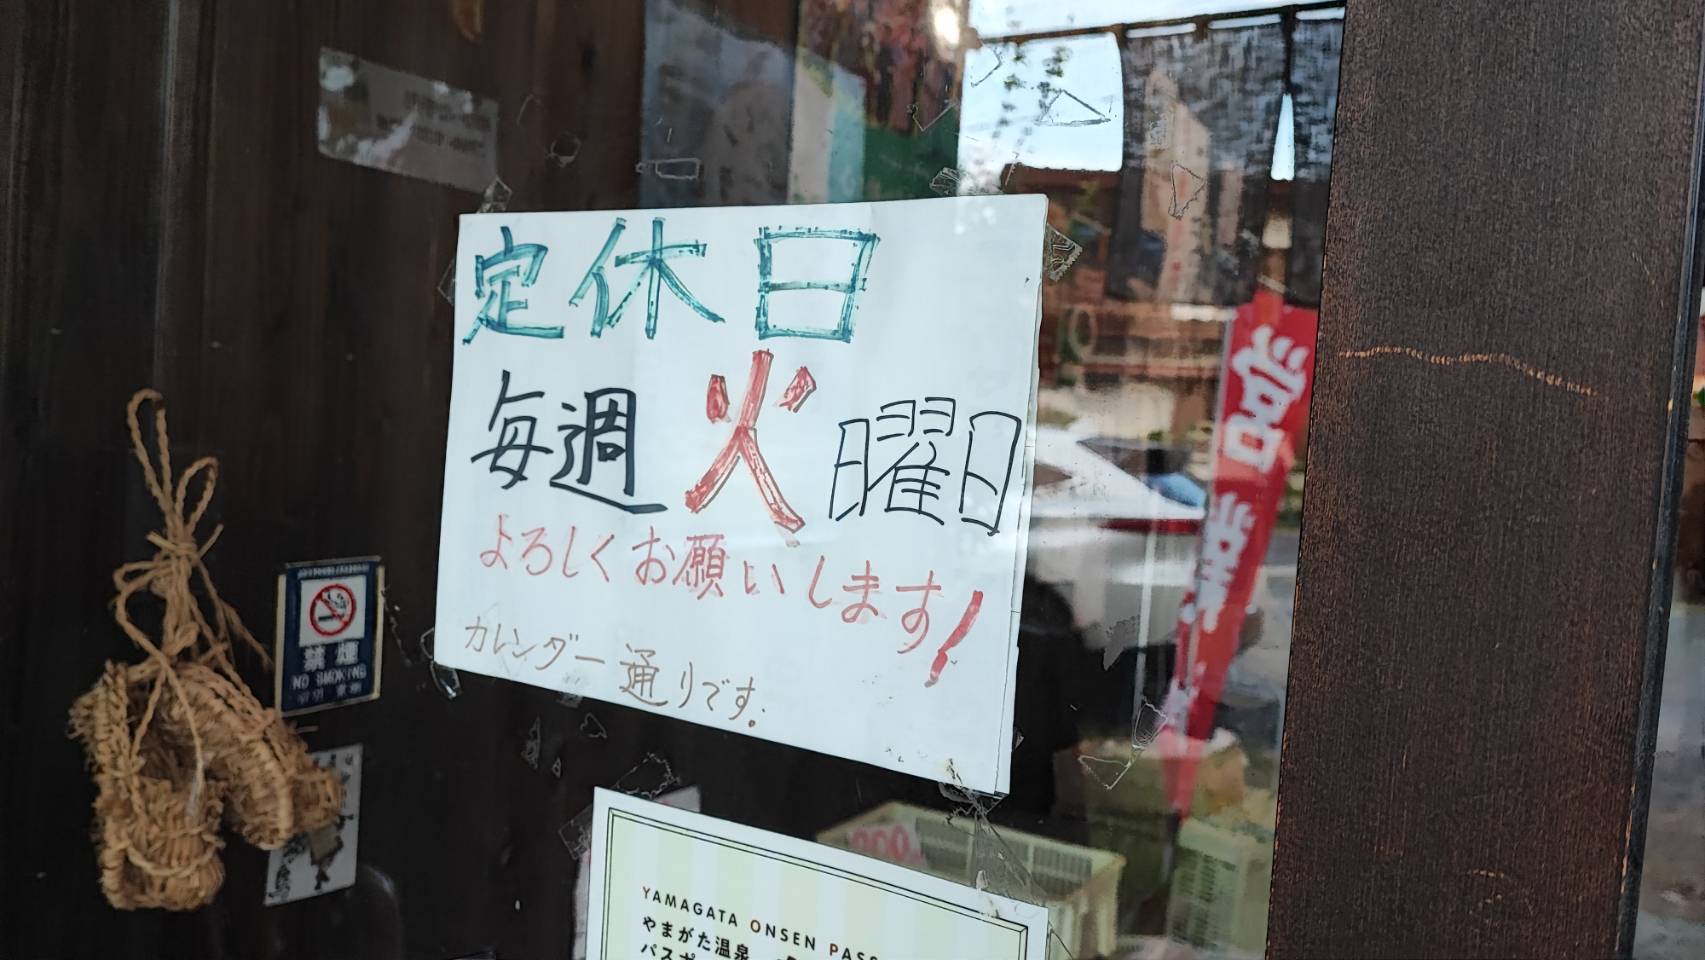 定休日
毎週火曜日
よろしくお願いします!
カレンダー通りです。
禁煙
NO SMOKING
営業
YAMAGATA ONSEN PASS
やまがた温泉
パスポ